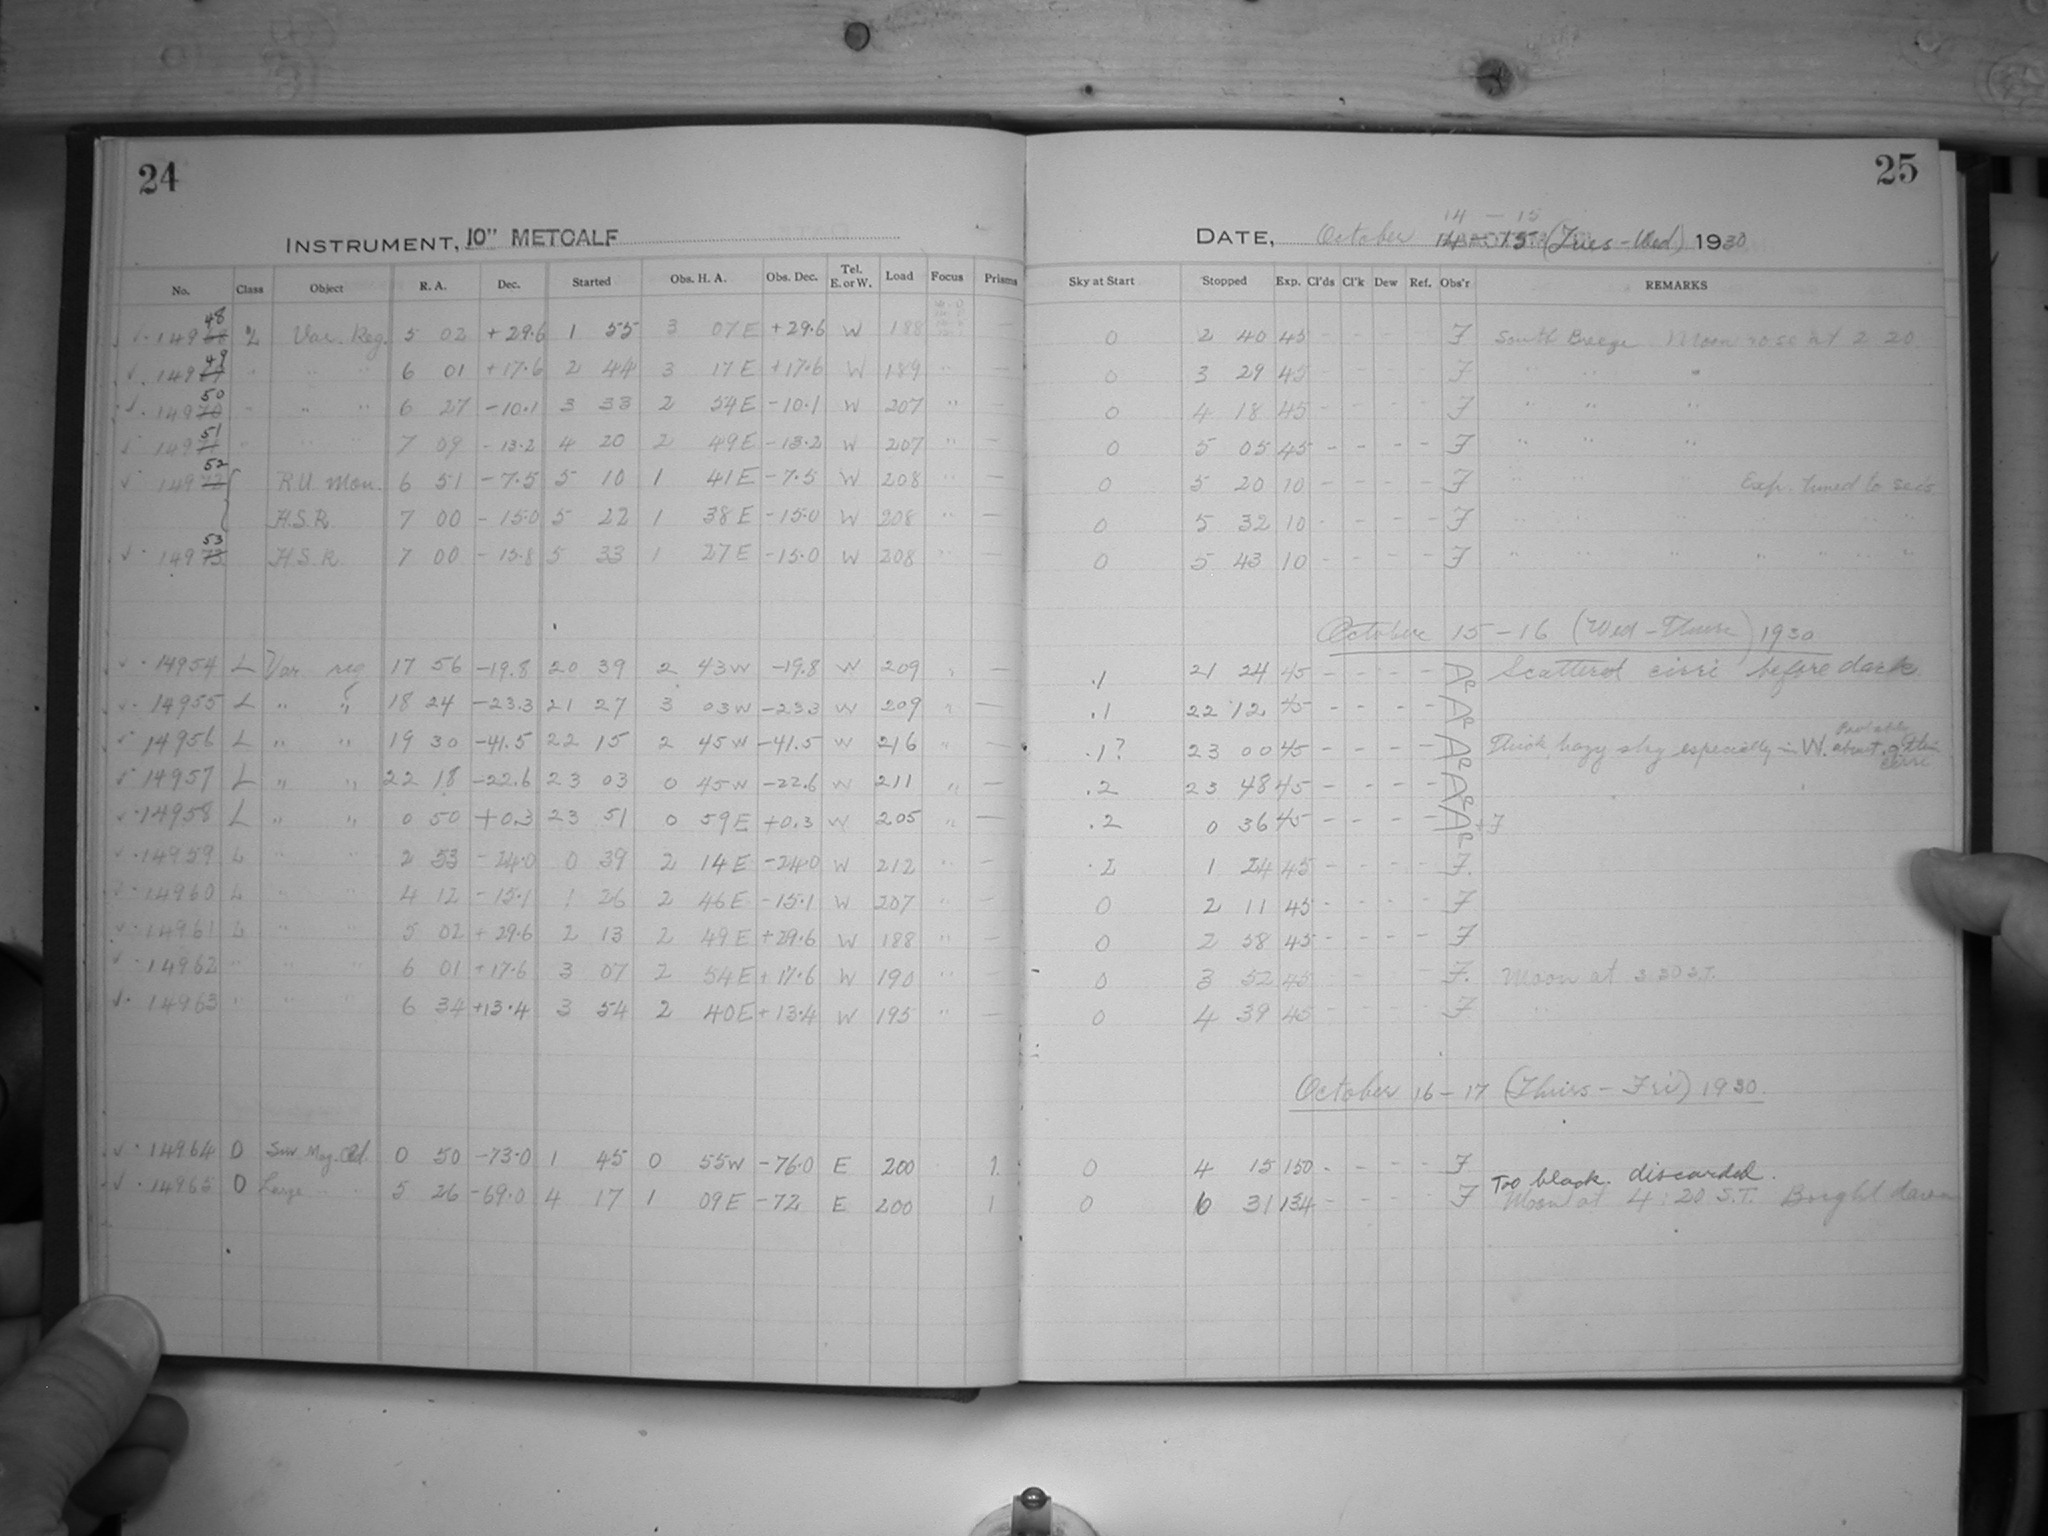 24
25
INSTRUMENT, 10" METCALF
14 — 15
DATE, October 14 - 15 (Tues-Wed) 1930
No. Class Object R. A. Dec. Started Obs. H. A. Obs. Dec. Tel. E. or W. Load Focus Prisms Sky at Start Stopped Exp. Cl'ds Cl'k Dew Ref. Obs'r REMARKS
14948 L Var. Reg. 5 02 +29.6 1 55 3 07 E +29.6 W 188 — 0 2 40 45 - - - - F South Breeze Moon rose at 2 20
14949 " " " 6 01 +17.6 2 44 3 17 E +17.6 W 189 " — 0 3 29 45 - - - - F " " "
14950 " " " 6 27 -10.1 3 33 2 54 E -10.1 W 207 " — 0 4 18 45 - - - - F " " "
14951 " " " 7 09 -13.2 4 20 2 49 E -13.2 W 207 " — 0 5 05 45 - - - - F " " "
14952 R U Mon. 6 51 -7.5 5 10 1 41 E -7.5 W 208 " — 0 5 20 10 - - - - F " " " Exp. timed to secs
H.S.R. 7 00 -15.0 5 22 1 38 E -15.0 W 208 " — 0 5 32 10 - - - - F " " "
14953 H.S.R. 7 00 -15.8 5 33 1 27 E -15.0 W 208 " — 0 5 43 10 - - - - F " " "
October 15 - 16 (Wed - Thurs) 1930
14954 L Var reg 17 56 -19.8 20 39 2 43 W -19.8 W 209 " — .1 21 24 45 - - - - Scattered cirri before dark
14955 L " " 18 24 -23.3 21 27 3 03 W -23.3 W 209 " — .1 22 12 45 - - - -
14956 L " " 19 30 -41.5 22 15 2 45 W -41.5 W 216 " — .1? 23 00 45 - - - - Thick, hazy sky especially in W. Probably about .2 thin cirri
14957 L " " 22 18 -22.6 23 03 0 45 W -22.6 W 211 " — .2 23 48 45 - - - -
14958 L " " 0 50 +0.3 23 51 0 59 E +0.3 W 205 " — .2 0 36 45 - - - - + F
14959 L " " 2 53 -24.0 0 39 2 14 E -24.0 W 212 " — .2 1 24 45 - - - - F.
14960 L " " 4 12 -15.1 1 26 2 46 E -15.1 W 207 " — 0 2 11 45 - - - - F
14961 L " " 5 02 +29.6 2 13 2 49 E +29.6 W 188 " — 0 2 58 45 - - - - F
14962 " " " 6 01 +17.6 3 07 2 54 E +17.6 W 190 " — 0 3 52 45 - - - - F. Moon at 3 30 S.T.
14963 " " " 6 34 +13.4 3 54 2 40 E +13.4 W 195 " — 0 4 39 45 - - - - F "
October 16 - 17 (Thurs - Fri) 1930.
14964 O Sm Mag. Cld. 0 50 -73.0 1 45 0 55 W -76.0 E 200 1. 0 4 15 150 - - - - F
Too black. discarded.
14965 O Large " " 5 26 -69.0 4 17 1 09 E -72 E 200 1 0 6 31 134 - - - - F Moon at 4:20 S.T. Bright dawn